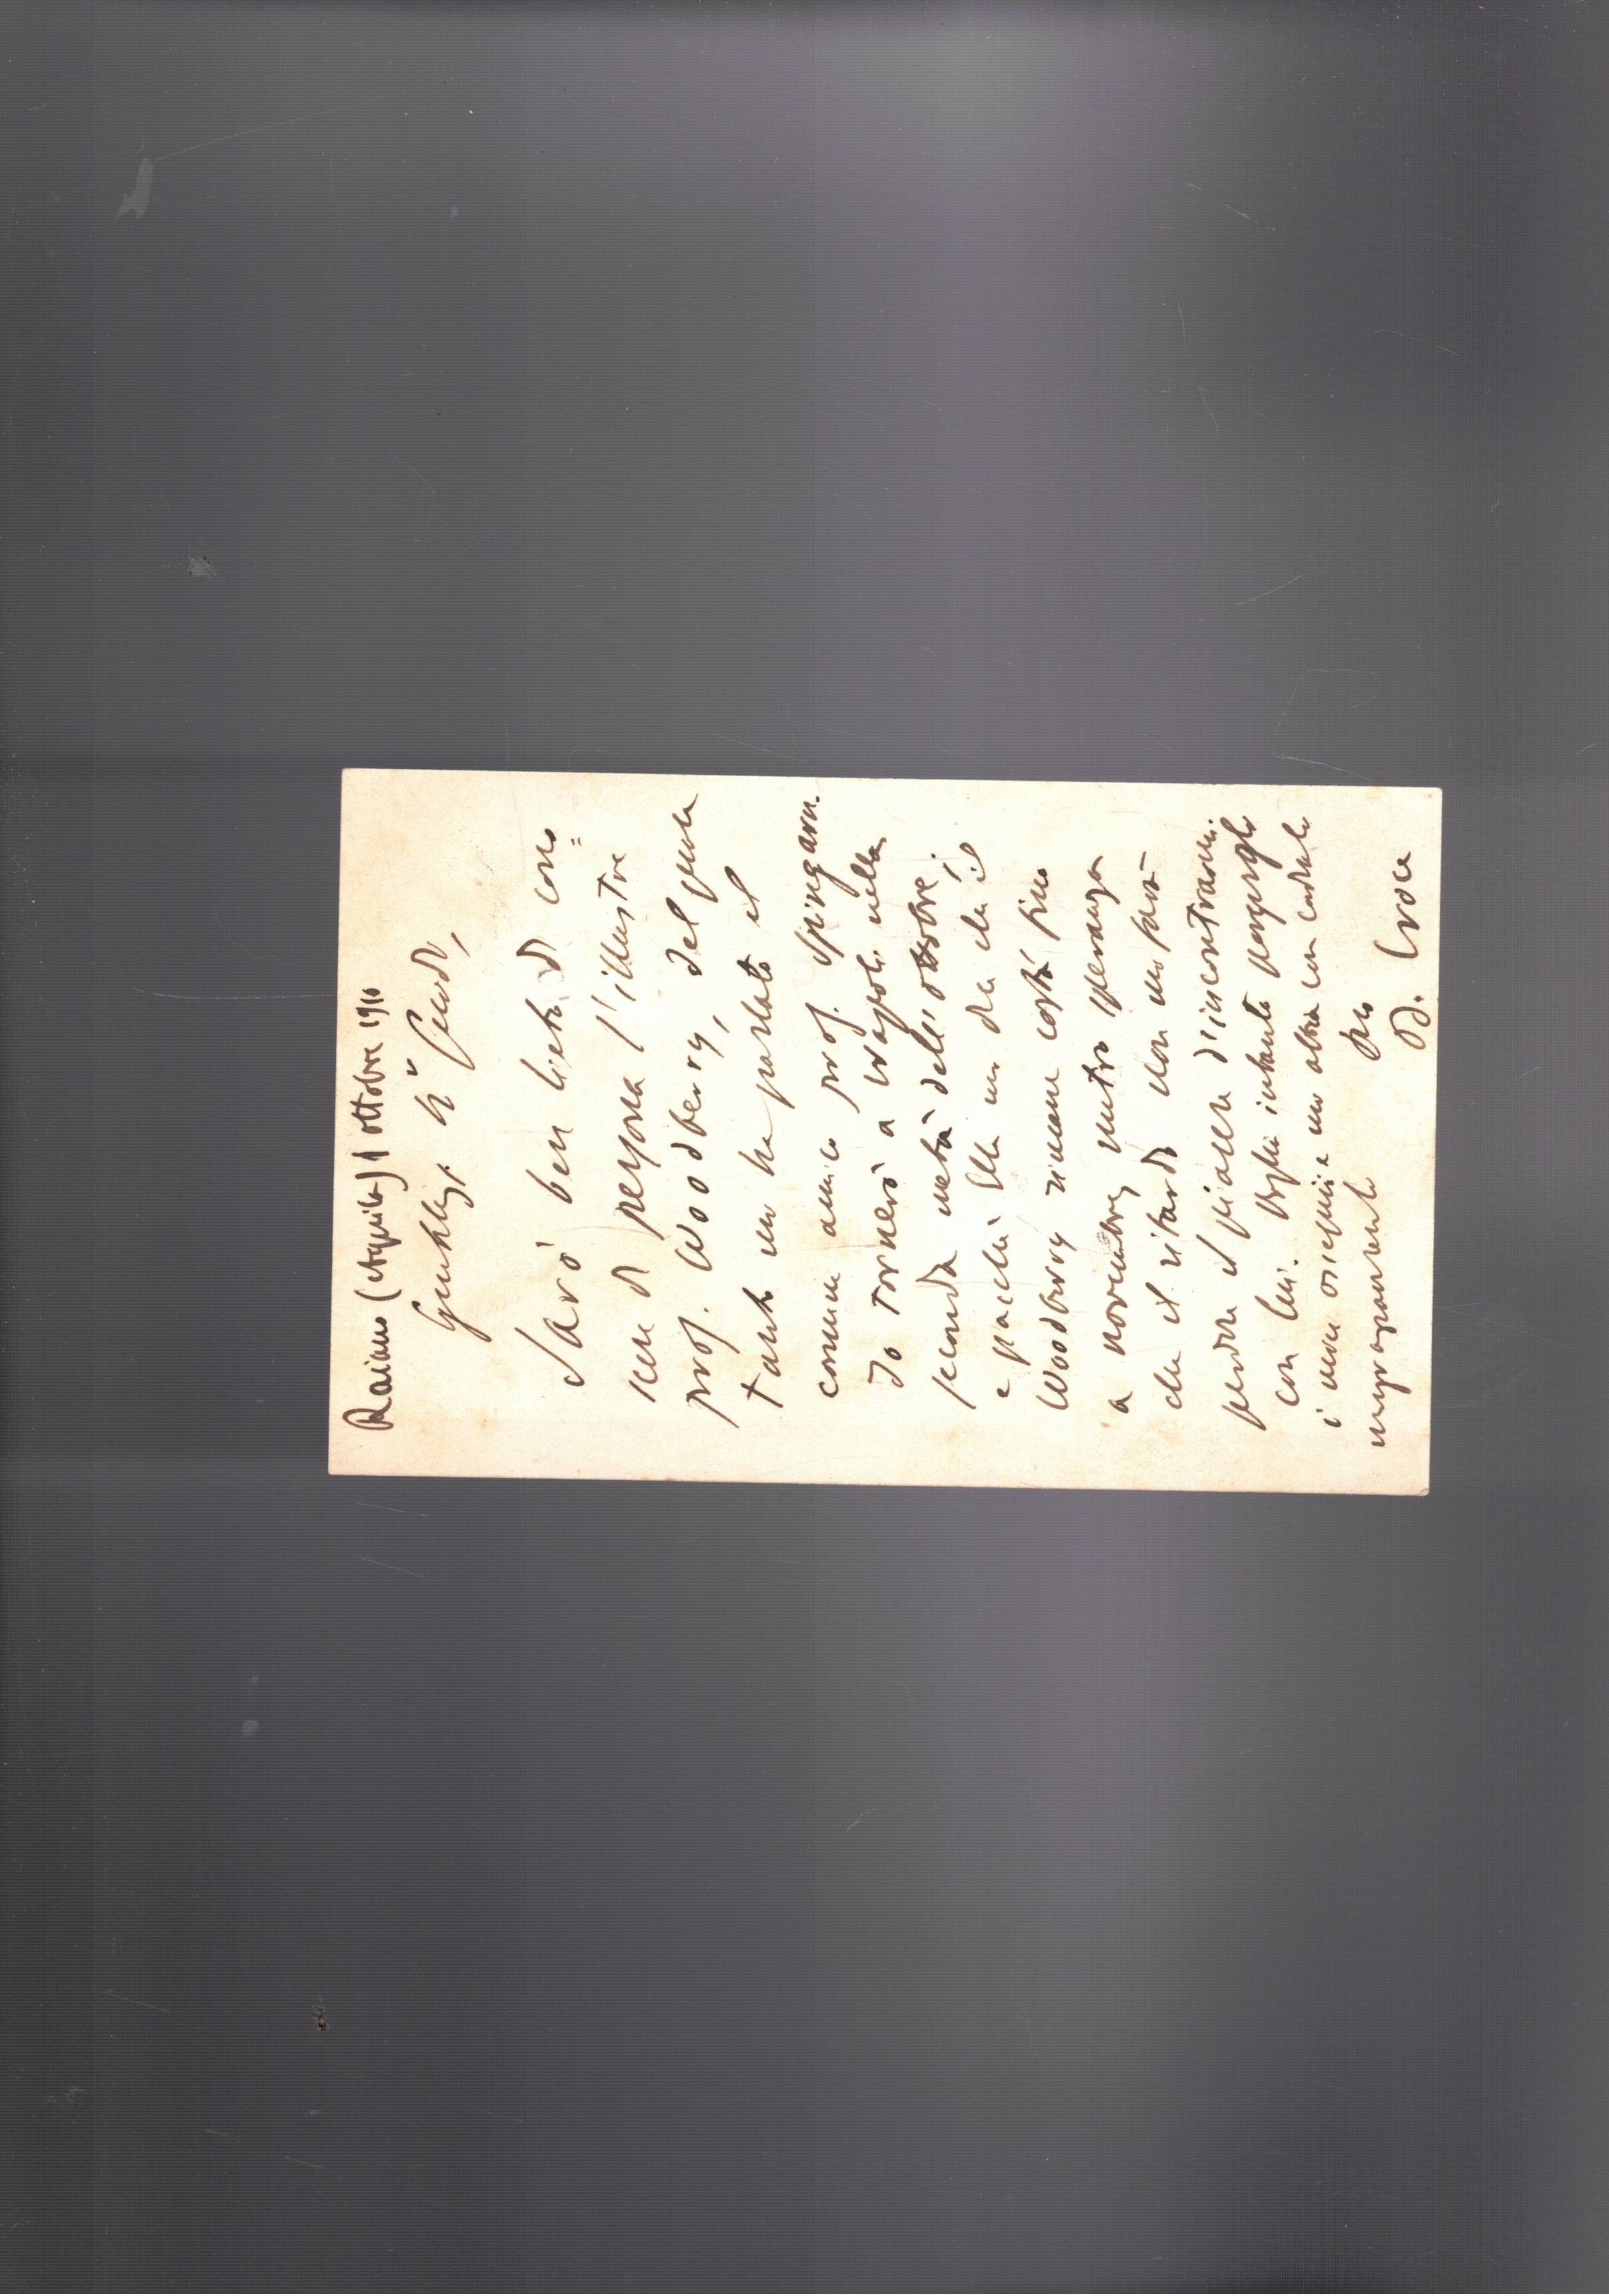 Raiano (Aquila) 1 ottobre 1910
Gentiliss.
Sarò ben lieto di cono=
scere di persona l'illustre
prof. Woodberry, del quale
tanto mi ha parlato il
comune amico prof. Spingarn.
Io tornerò a Napoli nella
seconda metà dell'ottobre;
e poiché Ella mi dice che il
Woodberry rimane costà fino
a novembre, nutro speranza
che il ritardo non mi farà
perdere il piacere d'incontrarmi
con lui. Voglia intanto porgergli
i miei ossequii e mi abbia con cordiale
ringraziamento suo
B. Croce